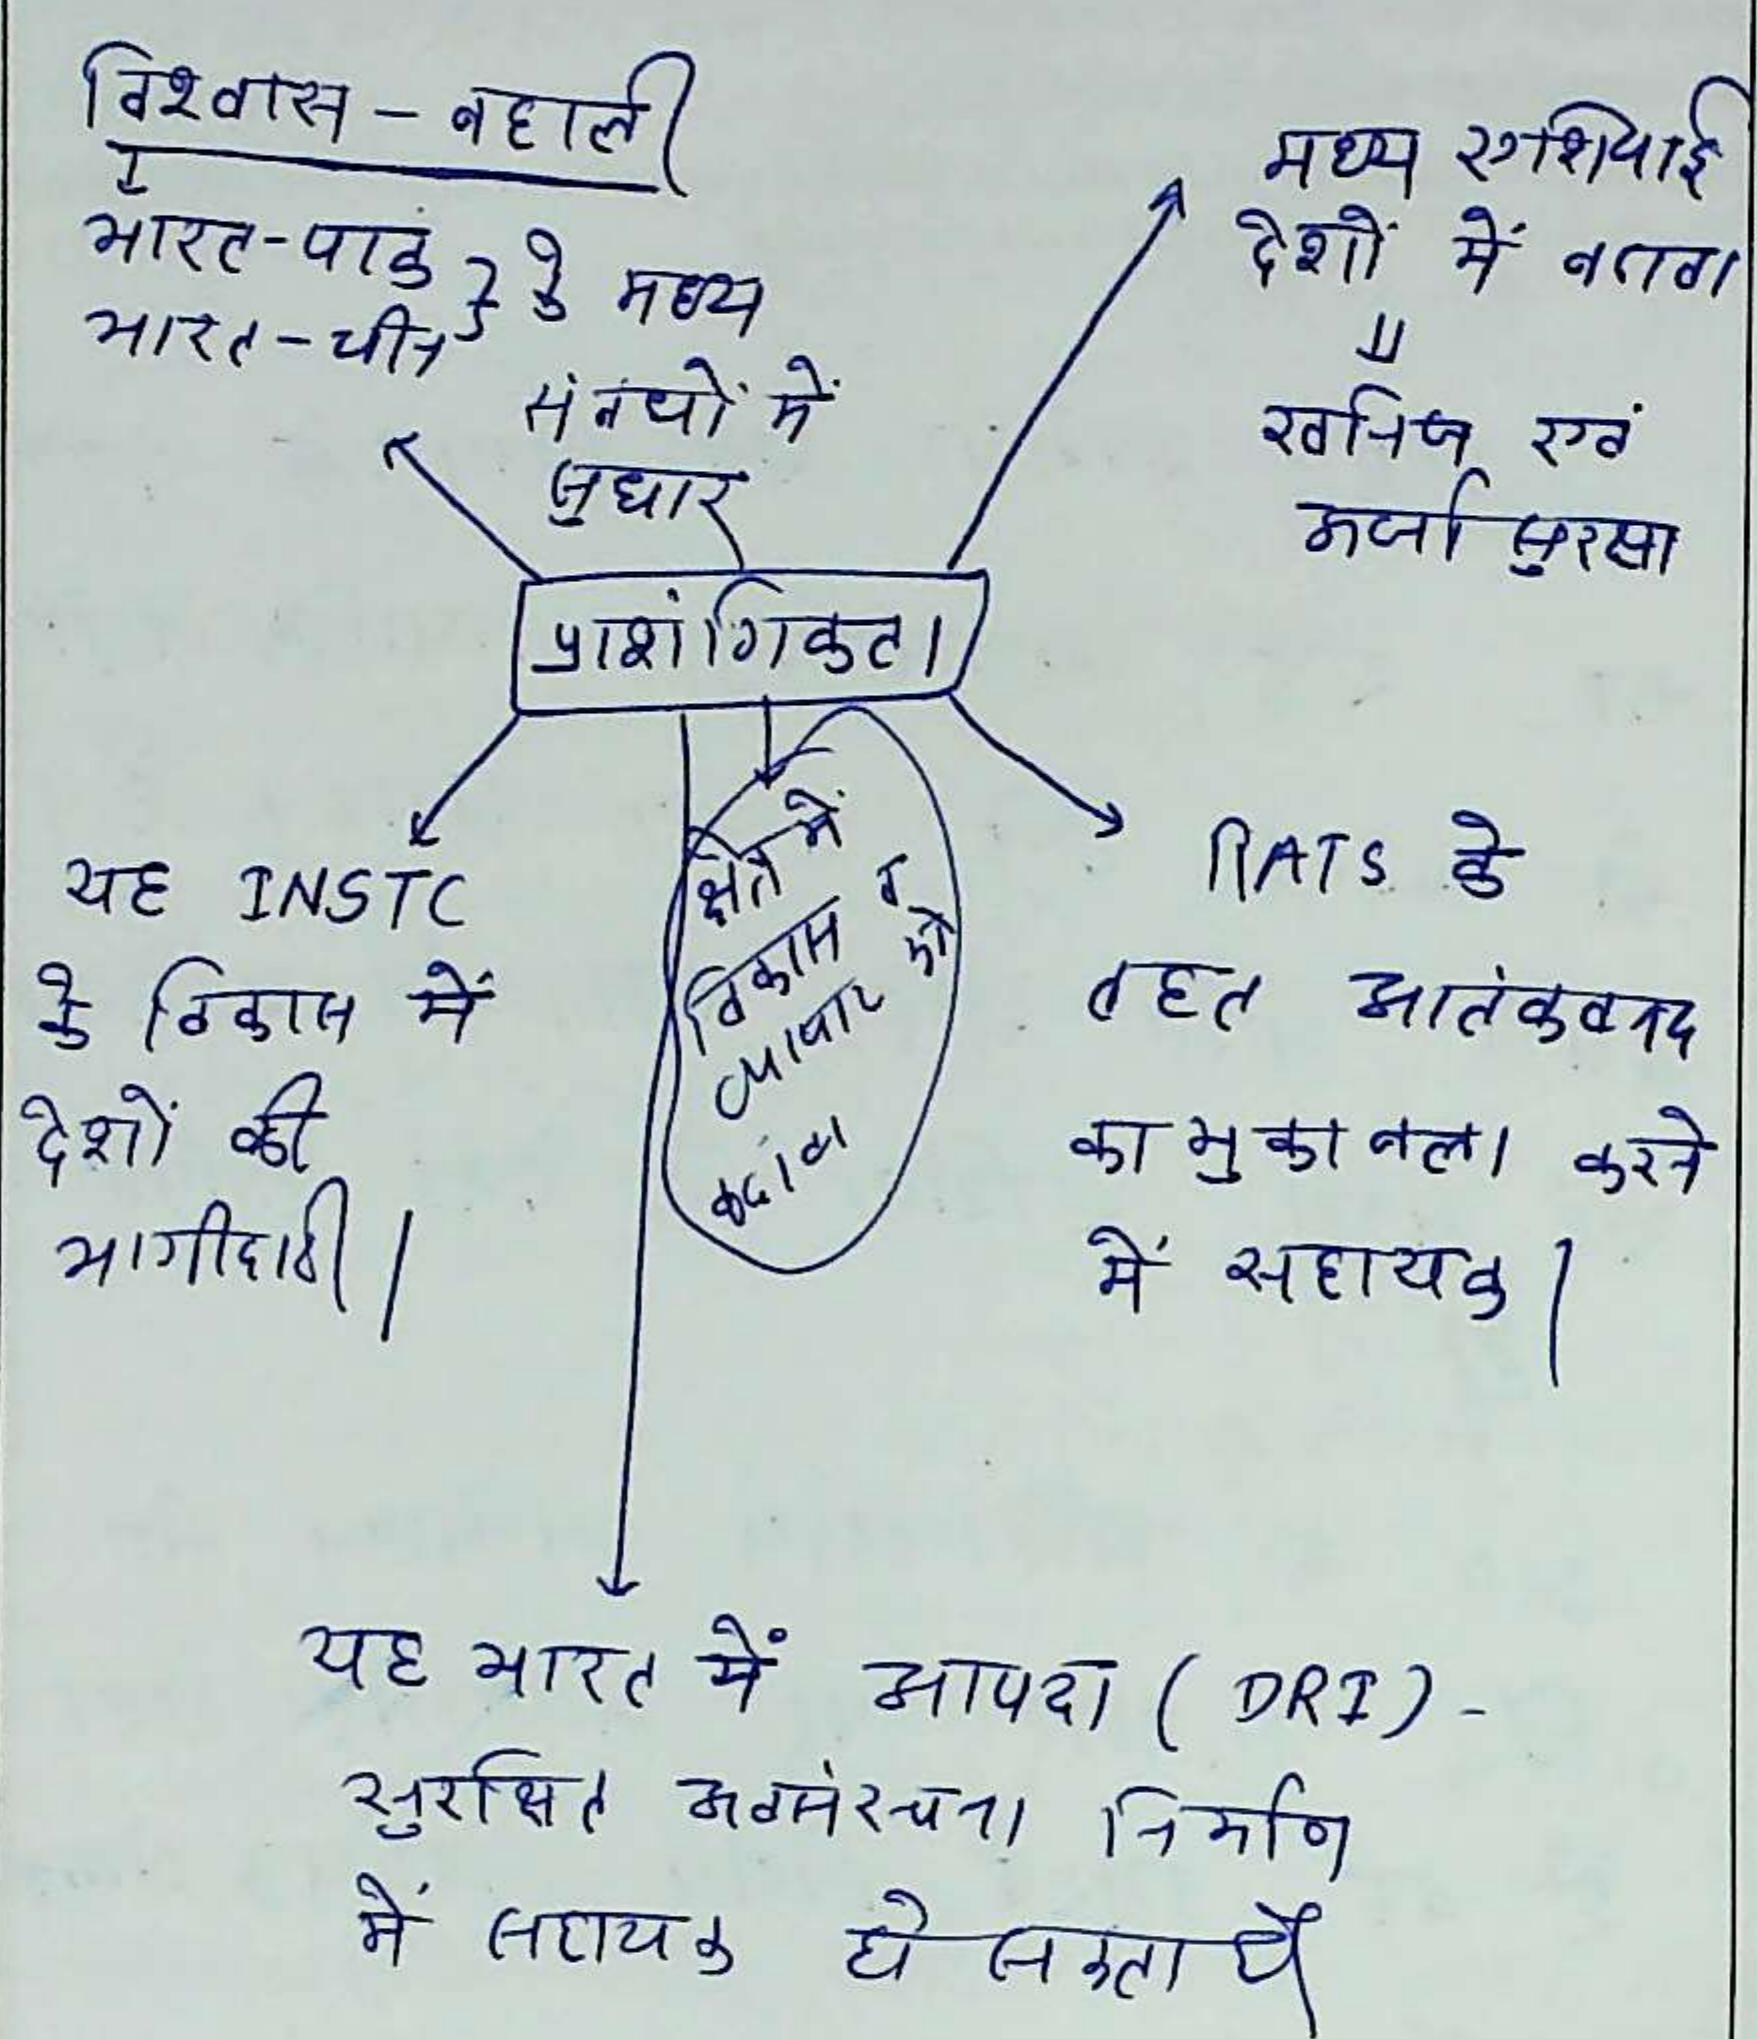 विश्वास - बहाली
भारत - पाक
भारत - चीन
के मध्य
संबंधों में
सुधार
मध्य एशियाई
देशों में
खनिज एवं
ऊर्जा सुरक्षा
प्राशंगिकता
यह INSTC
के विकास में
देशों की
भागीदारी।
क्षेत्र में
विकास व
व्यापार को
बढ़ावा
RATS के
तहत आतंकवाद
का मुकाबला करने
में सहायक।
यह भारत में आपदा (DRI) -
सुरक्षित अवसंरचना निर्माण
में सहायक हो सकता है